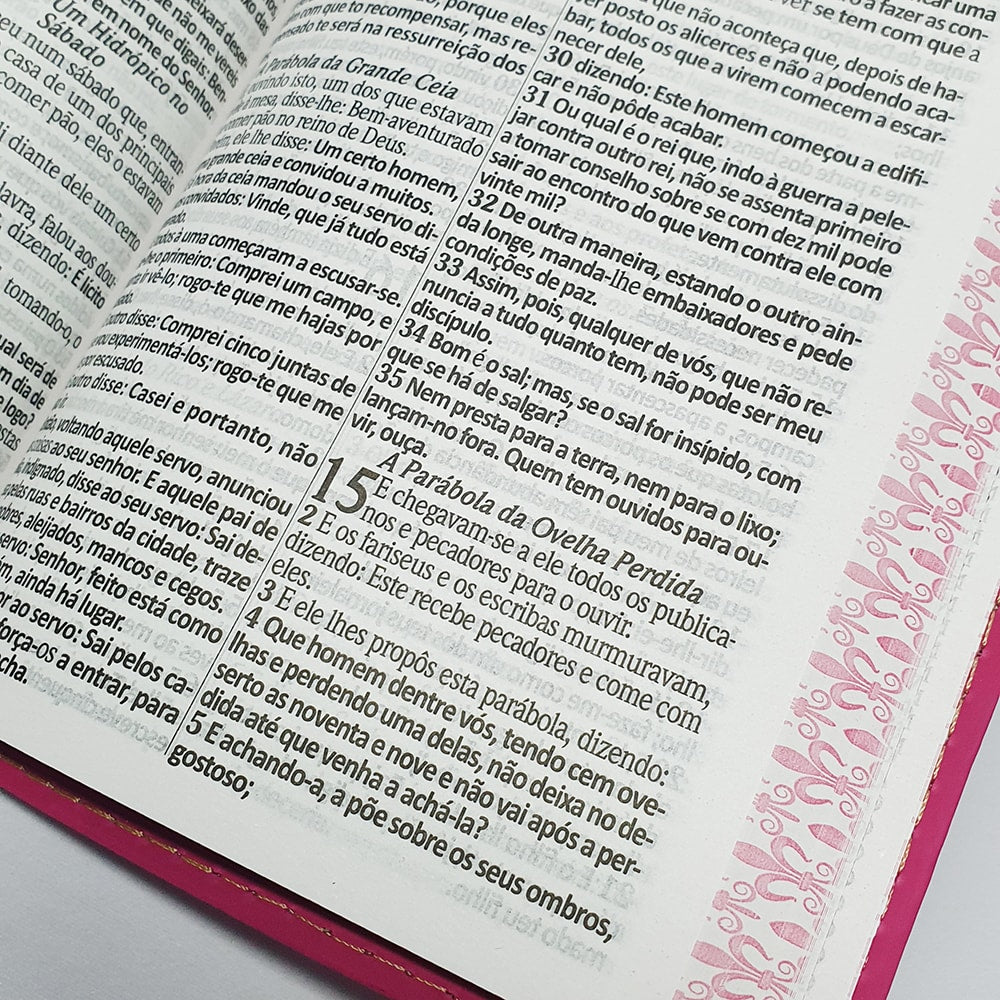 deixará desen-
em que digais: Ben-
em nome do Senhor.
Um Hidrópico no
Sábado
num sábado que, entran-
casa de um dos principais
comer pão, eles o estavam
diante dele um certo
falou aos dou-
dizendo: É lícito
tomando-o, o
será de
em dia de
e logo?
com que to recompensar, mas re-
te será na ressurreição dos
Parábola da Grande Ceia
ouvindo isto, um dos que estavam
à mesa, disse-lhe: Bem-aventurado
comer pão no reino de Deus.
ele lhe disse: Um certo homem,
grande ceia e convidou a muitos.
hora da ceia mandou o seu servo di-
convidados: Vinde, que já tudo está
à uma começaram a escusar-se.
o primeiro: Comprei um campo, e
ir vê-lo; rogo-te que me hajas por
outro disse: Comprei cinco juntas de
vou experimentá-los; rogo-te que me
por escusado.
outro disse: Casei e portanto, não
ir.
voltando aquele servo, anunciou
ao seu senhor. E aquele pai de
indignado, disse ao seu servo: Sai de-
pelas ruas e bairros da cidade, traze
aleijados, mancos e cegos.
servo: Senhor, feito está como
ainda há lugar.
ao servo: Sai pelos ca-
força-os a entrar, para
a fazer as con-
ver se tem com que a
que não aconteça que, depois de ha-
posto os alicerces e não a podendo aca-
bar, todos os que a virem comecem a escar-
necer dele,
30 dizendo: Este homem começou a edifi-
car e não pôde acabar.
31 Ou qual é o rei que, indo à guerra a pele-
jar contra outro rei, não se assenta primeiro
a tomar conselho sobre se com dez mil pode
sair ao encontro do que vem contra ele com
vinte mil?
32 De outra maneira, estando o outro ain-
da longe, manda-lhe embaixadores e pede
condições de paz.
33 Assim, pois, qualquer de vós, que não re-
nuncia a tudo quanto tem, não pode ser meu
discípulo.
34 Bom é o sal; mas, se o sal for insípido, com
que se há de salgar?
35 Nem presta para a terra, nem para o lixo;
lançam-no fora. Quem tem ouvidos para ou-
vir, ouça.
A Parábola da Ovelha Perdida
15 E chegavam-se a ele todos os publica-
nos e pecadores para o ouvir.
2 E os fariseus e os escribas murmuravam,
dizendo: Este recebe pecadores e come com
eles.
3 E ele lhes propôs esta parábola, dizendo:
4 Que homem dentre vós, tendo cem ove-
lhas e perdendo uma delas, não deixa no de-
serto as noventa e nove e não vai após a per-
dida até que venha a achá-la?
5 E achando-a, a põe sobre os seus ombros,
gostoso;